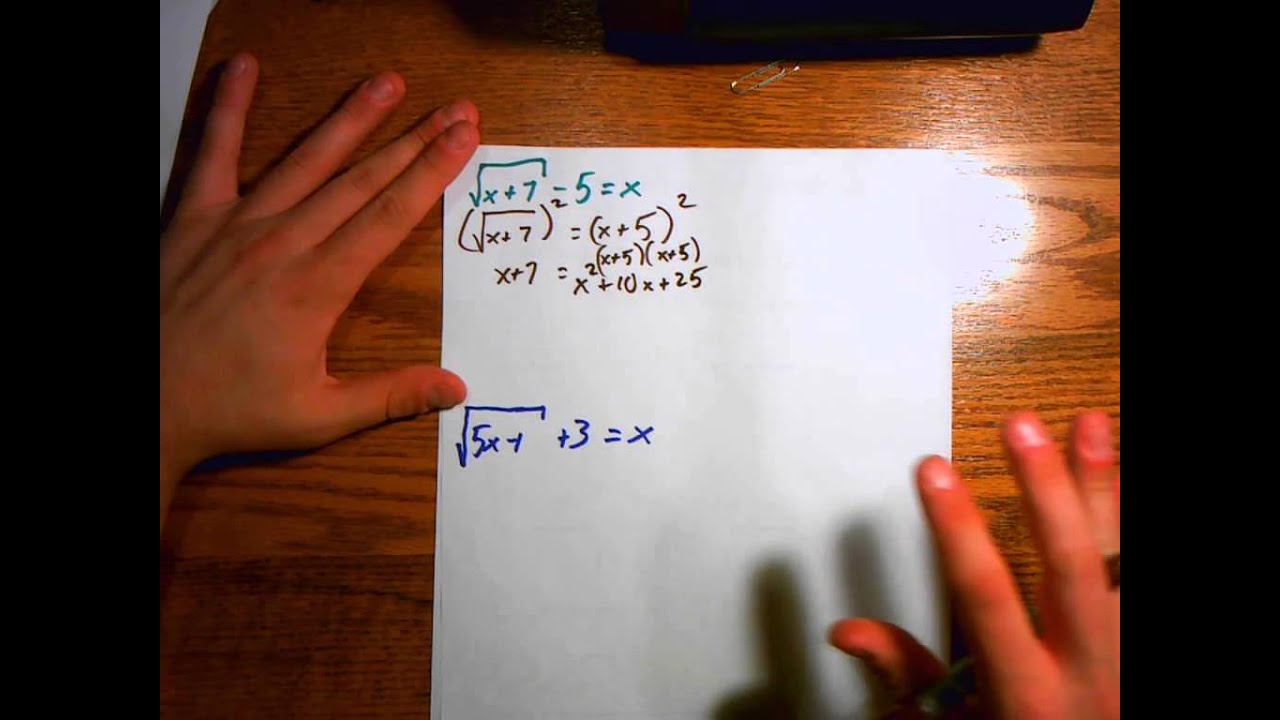 √x+7 - 5 = x
(√x+7)² = (x+5)²
(x+5)(x+5)
x+7 = x²+10x+25
√5x-1 +3 = x